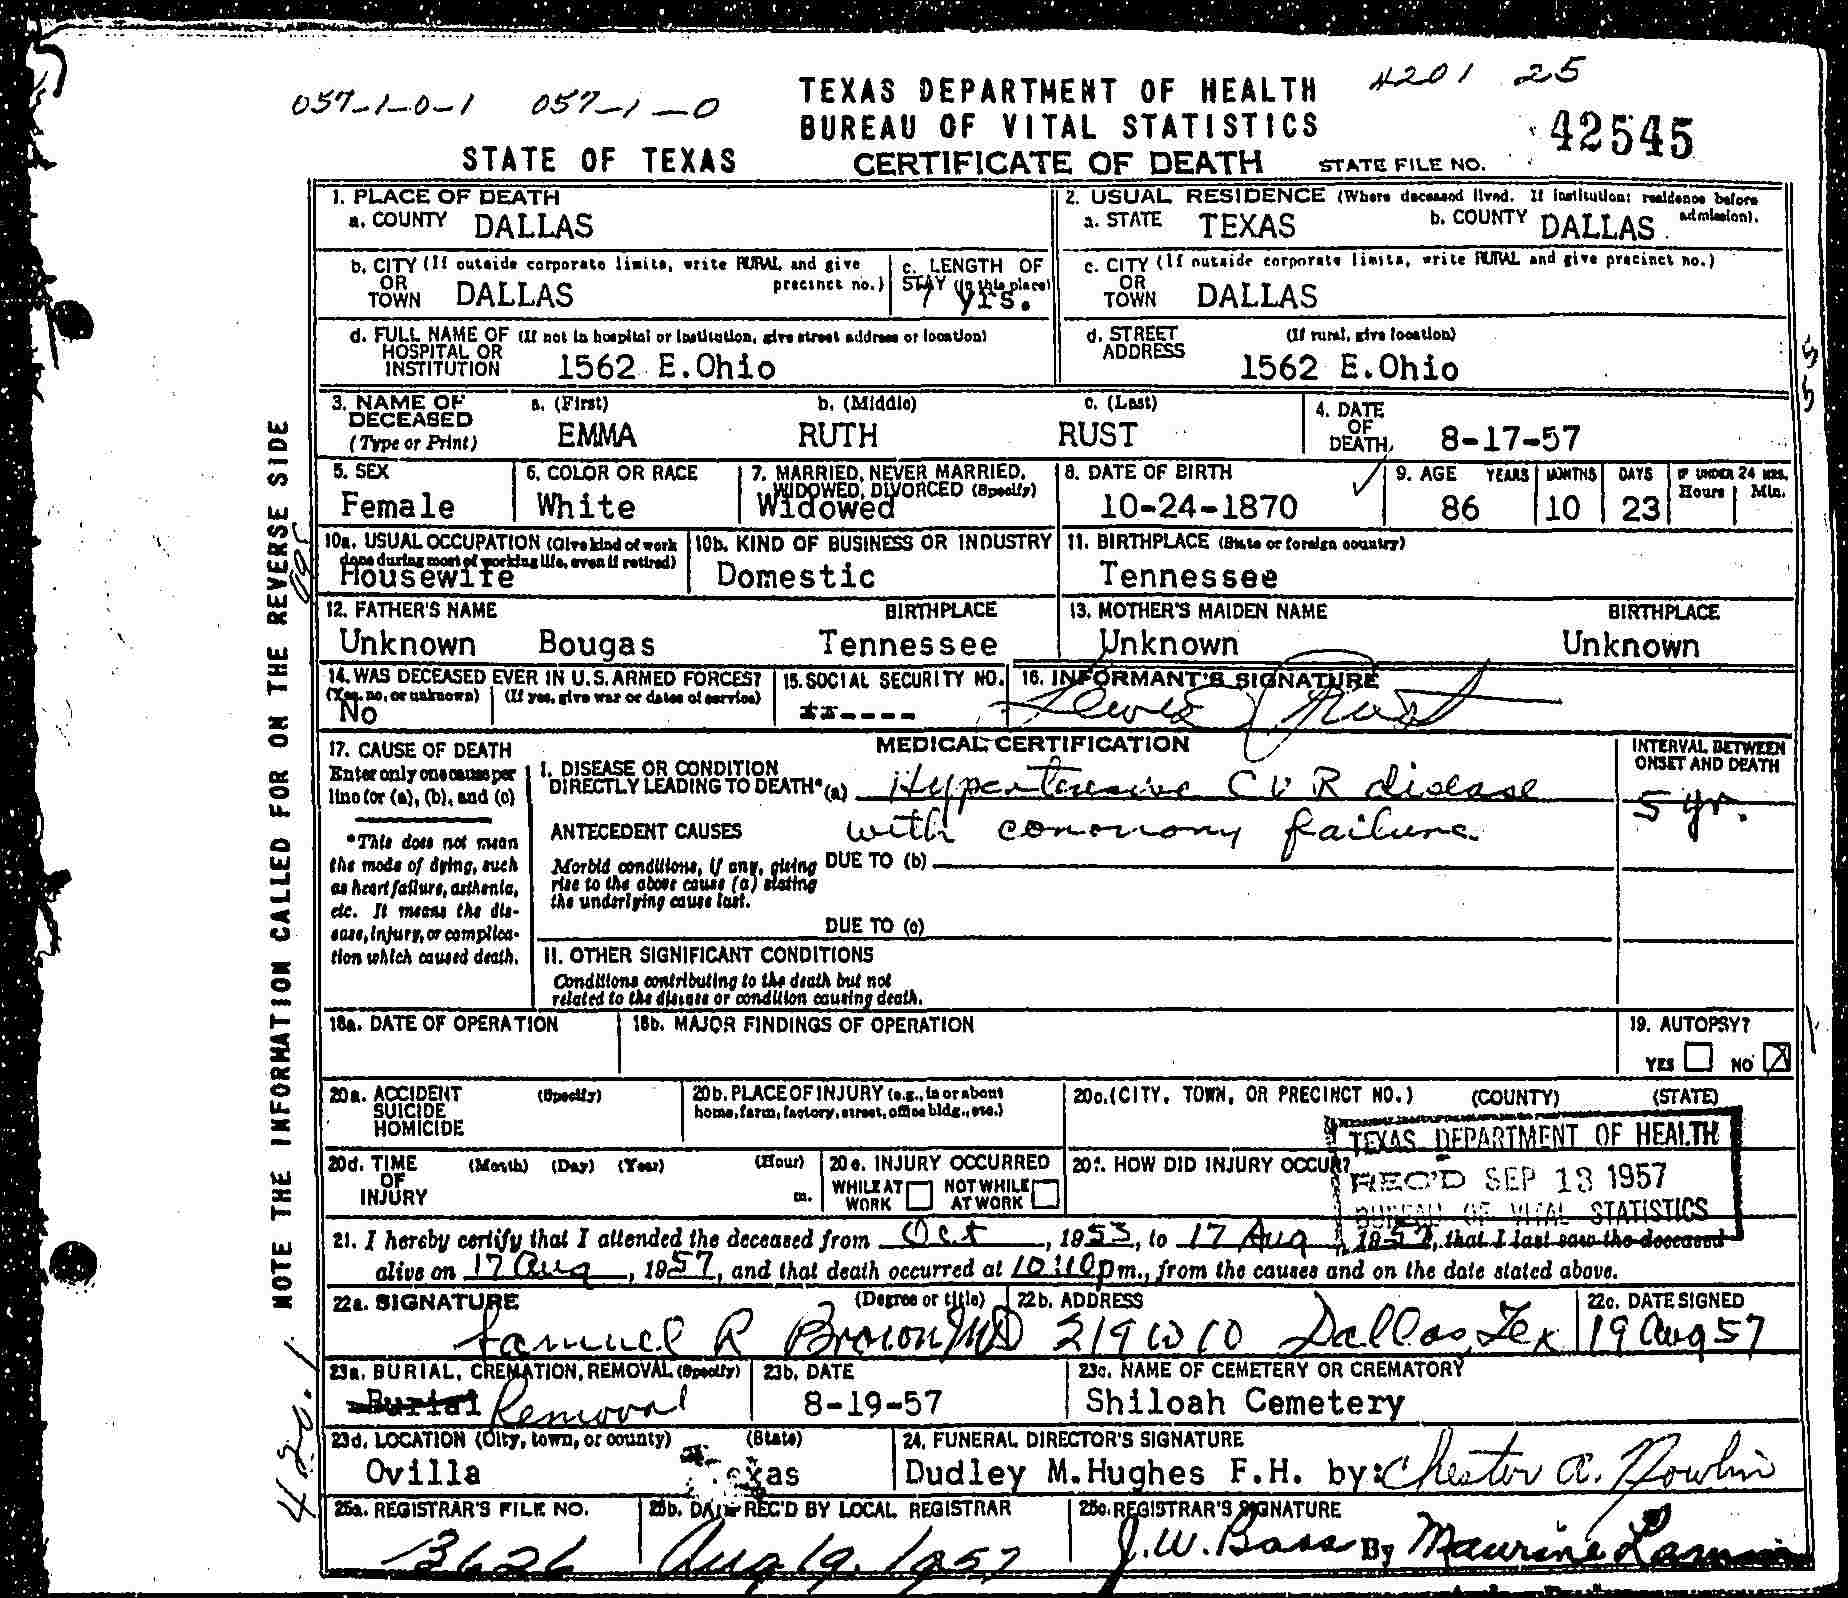 057-1-0-1 057-1-0
4201 25
TEXAS DEPARTMENT OF HEALTH
BUREAU OF VITAL STATISTICS
STATE OF TEXAS CERTIFICATE OF DEATH STATE FILE NO. 42545
NOTE THE INFORMATION CALLED FOR ON THE REVERSE SIDE
1. PLACE OF DEATH
a. COUNTY DALLAS
2. USUAL RESIDENCE (Where deceased lived. If institution: residence before admission).
a. STATE TEXAS b. COUNTY DALLAS
b. CITY (If outside corporate limits, write RURAL and give precinct no.)
OR
TOWN DALLAS
c. LENGTH OF
STAY (in this place)
7 yrs.
c. CITY (If outside corporate limits, write RURAL and give precinct no.)
OR
TOWN DALLAS
d. FULL NAME OF (If not in hospital or institution, give street address or location)
HOSPITAL OR
INSTITUTION 1562 E.Ohio
d. STREET (If rural, give location)
ADDRESS
1562 E.Ohio
3. NAME OF a. (First) b. (Middle) c. (Last)
DECEASED
(Type or Print) EMMA RUTH RUST
4. DATE
OF
DEATH 8-17-57
5. SEX
Female
6. COLOR OR RACE
White
7. MARRIED, NEVER MARRIED,
WIDOWED, DIVORCED (Specify)
Widowed
8. DATE OF BIRTH
10-24-1870
9. AGE YEARS MONTHS DAYS IF UNDER 24 HRS.
Hours Min.
86 10 23
10a. USUAL OCCUPATION (Give kind of work
done during most of working life, even if retired)
Housewife
10b. KIND OF BUSINESS OR INDUSTRY
Domestic
11. BIRTHPLACE (State or foreign country)
Tennessee
12. FATHER'S NAME BIRTHPLACE
Unknown Bougas Tennessee
13. MOTHER'S MAIDEN NAME BIRTHPLACE
Unknown Unknown
14. WAS DECEASED EVER IN U.S. ARMED FORCES?
(Yes, no, or unknown) (If yes, give war or dates of service)
No
15. SOCIAL SECURITY NO.
16. INFORMANT'S SIGNATURE
Lewis J Rust
17. CAUSE OF DEATH
Enter only one cause per
line for (a), (b), and (c)
*This does not mean
the mode of dying, such
as heart failure, asthenia,
etc. It means the dis-
ease, injury, or complica-
tion which caused death.
MEDICAL CERTIFICATION
INTERVAL BETWEEN
ONSET AND DEATH
I. DISEASE OR CONDITION
DIRECTLY LEADING TO DEATH* (a) Hypertensive C V R disease
5 yr.
ANTECEDENT CAUSES with coronary failure
Morbid conditions, if any, giving
rise to the above cause (a) stating
the underlying cause last.
DUE TO (b)
DUE TO (c)
II. OTHER SIGNIFICANT CONDITIONS
Conditions contributing to the death but not
related to the disease or condition causing death.
18a. DATE OF OPERATION
18b. MAJOR FINDINGS OF OPERATION
19. AUTOPSY?
YES NO X
20a. ACCIDENT (Specify)
SUICIDE
HOMICIDE
20b. PLACE OF INJURY (e.g., in or about
home, farm, factory, street, office bldg., etc.)
20c. (CITY, TOWN, OR PRECINCT NO.) (COUNTY) (STATE)
TEXAS DEPARTMENT OF HEALTH
REC'D SEP 13 1957
BUREAU OF VITAL STATISTICS
20d. TIME (Month) (Day) (Year) (Hour)
OF
INJURY m.
20e. INJURY OCCURRED
WHILE AT WORK NOT WHILE AT WORK
20f. HOW DID INJURY OCCUR?
21. I hereby certify that I attended the deceased from Oct, 1953, to 17 Aug, 1957, that I last saw the deceased
alive on 17 Aug, 1957, and that death occurred at 10:10 pm., from the causes and on the date stated above.
22a. SIGNATURE (Degree or title)
Samuel R Brown MD
22b. ADDRESS
219 W 10 Dallas, Tex
22c. DATE SIGNED
19 Aug 57
23a. BURIAL, CREMATION, REMOVAL (Specify)
Burial Removal
23b. DATE
8-19-57
23c. NAME OF CEMETERY OR CREMATORY
Shiloah Cemetery
23d. LOCATION (City, town, or county) (State)
Ovilla Texas
24. FUNERAL DIRECTOR'S SIGNATURE
Dudley M.Hughes F.H. by: Chester A. Nowlin
25a. REGISTRAR'S FILE NO.
3626
25b. DATE REC'D BY LOCAL REGISTRAR
Aug 19, 1957
25c. REGISTRAR'S SIGNATURE
J.W. Bass By Maurine
420.1